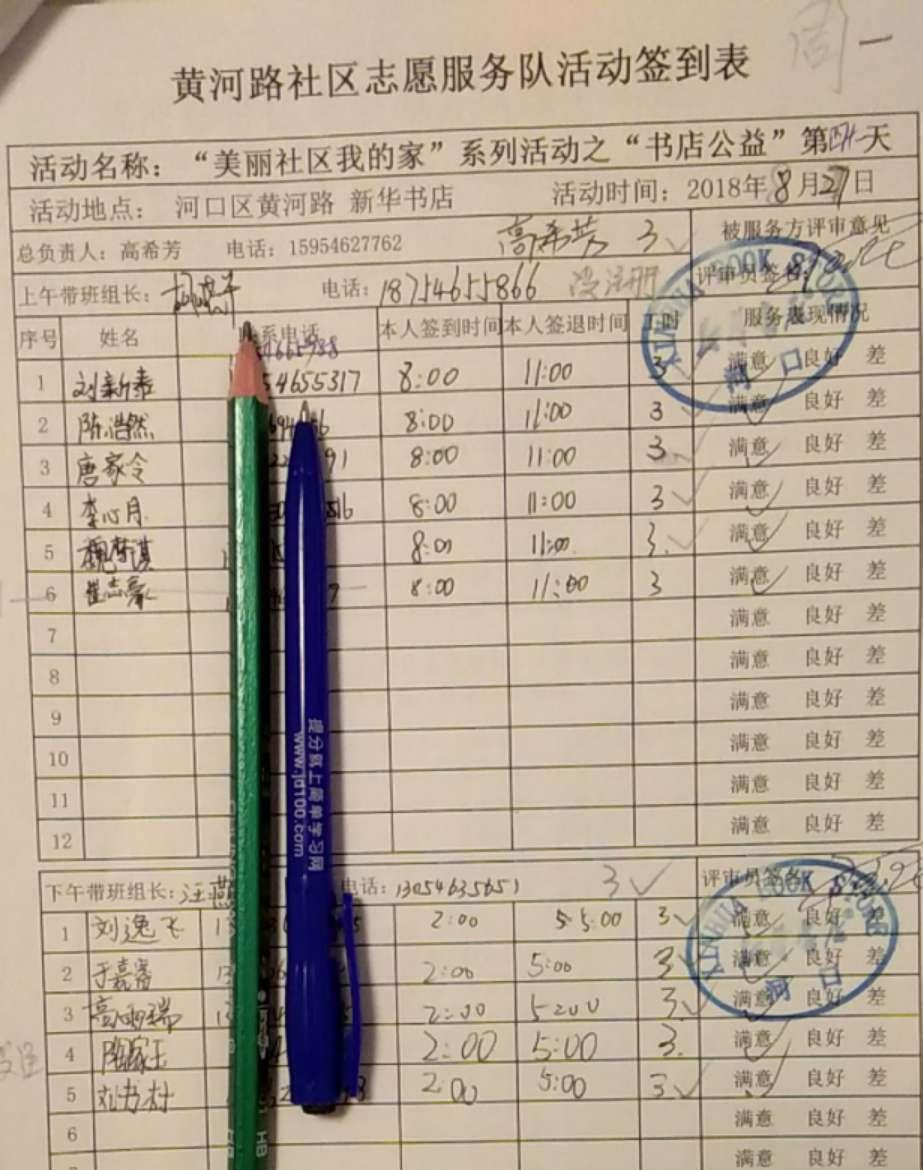 周一
黄河路社区志愿服务队活动签到表
活动名称：“美丽社区我的家”系列活动之“书店公益”第四十一天
活动地点： 河口区黄河路 新华书店 活动时间：2018年8月27日
总负责人：高希芳 电话：15954627762 高希芳 3 被服务方评审意见
上午带班组长： 电话：18754655866 评审员签名：
序号 姓名 系电话 本人签到时间 本人签退时间 工时 服务表现情况
满意 良好 差
1 刘新泰 54655317 8:00 11:00 3 满意 良好 差
2 陈浩然 8:00 11:00 3 满意 良好 差
3 唐家令 91 8:00 11:00 3 满意 良好 差
4 李心月 516 8:00 11:00 3 满意 良好 差
5 8:00 11:00 3 满意 良好 差
6 崔志豪 7 8:00 11:00 3 满意 良好 差
7 满意 良好 差
8 满意 良好 差
9 满意 良好 差
10 满意 良好 差
11 满意 良好 差
12 满意 良好 差
下午带班组长：汪燕 电话：13054635651 3 评审员签名
1 刘逸飞 13 2:00 5:00 3 满意 良好 差
2 于嘉睿 13 2:00 5:00 3 满意 良好 差
3 高雨瑞 2:00 5:00 3 满意 良好 差
4 2:00 5:00 3 满意 良好 差
5 2:00 5:00 3 满意 良好 差
6 满意 良好 差
满意 良好 差
XINHUA BOOK STORE
河口
XINHUA BOOK STORE
河口
提分就上简单学习网
www.jd100.com
HB HB